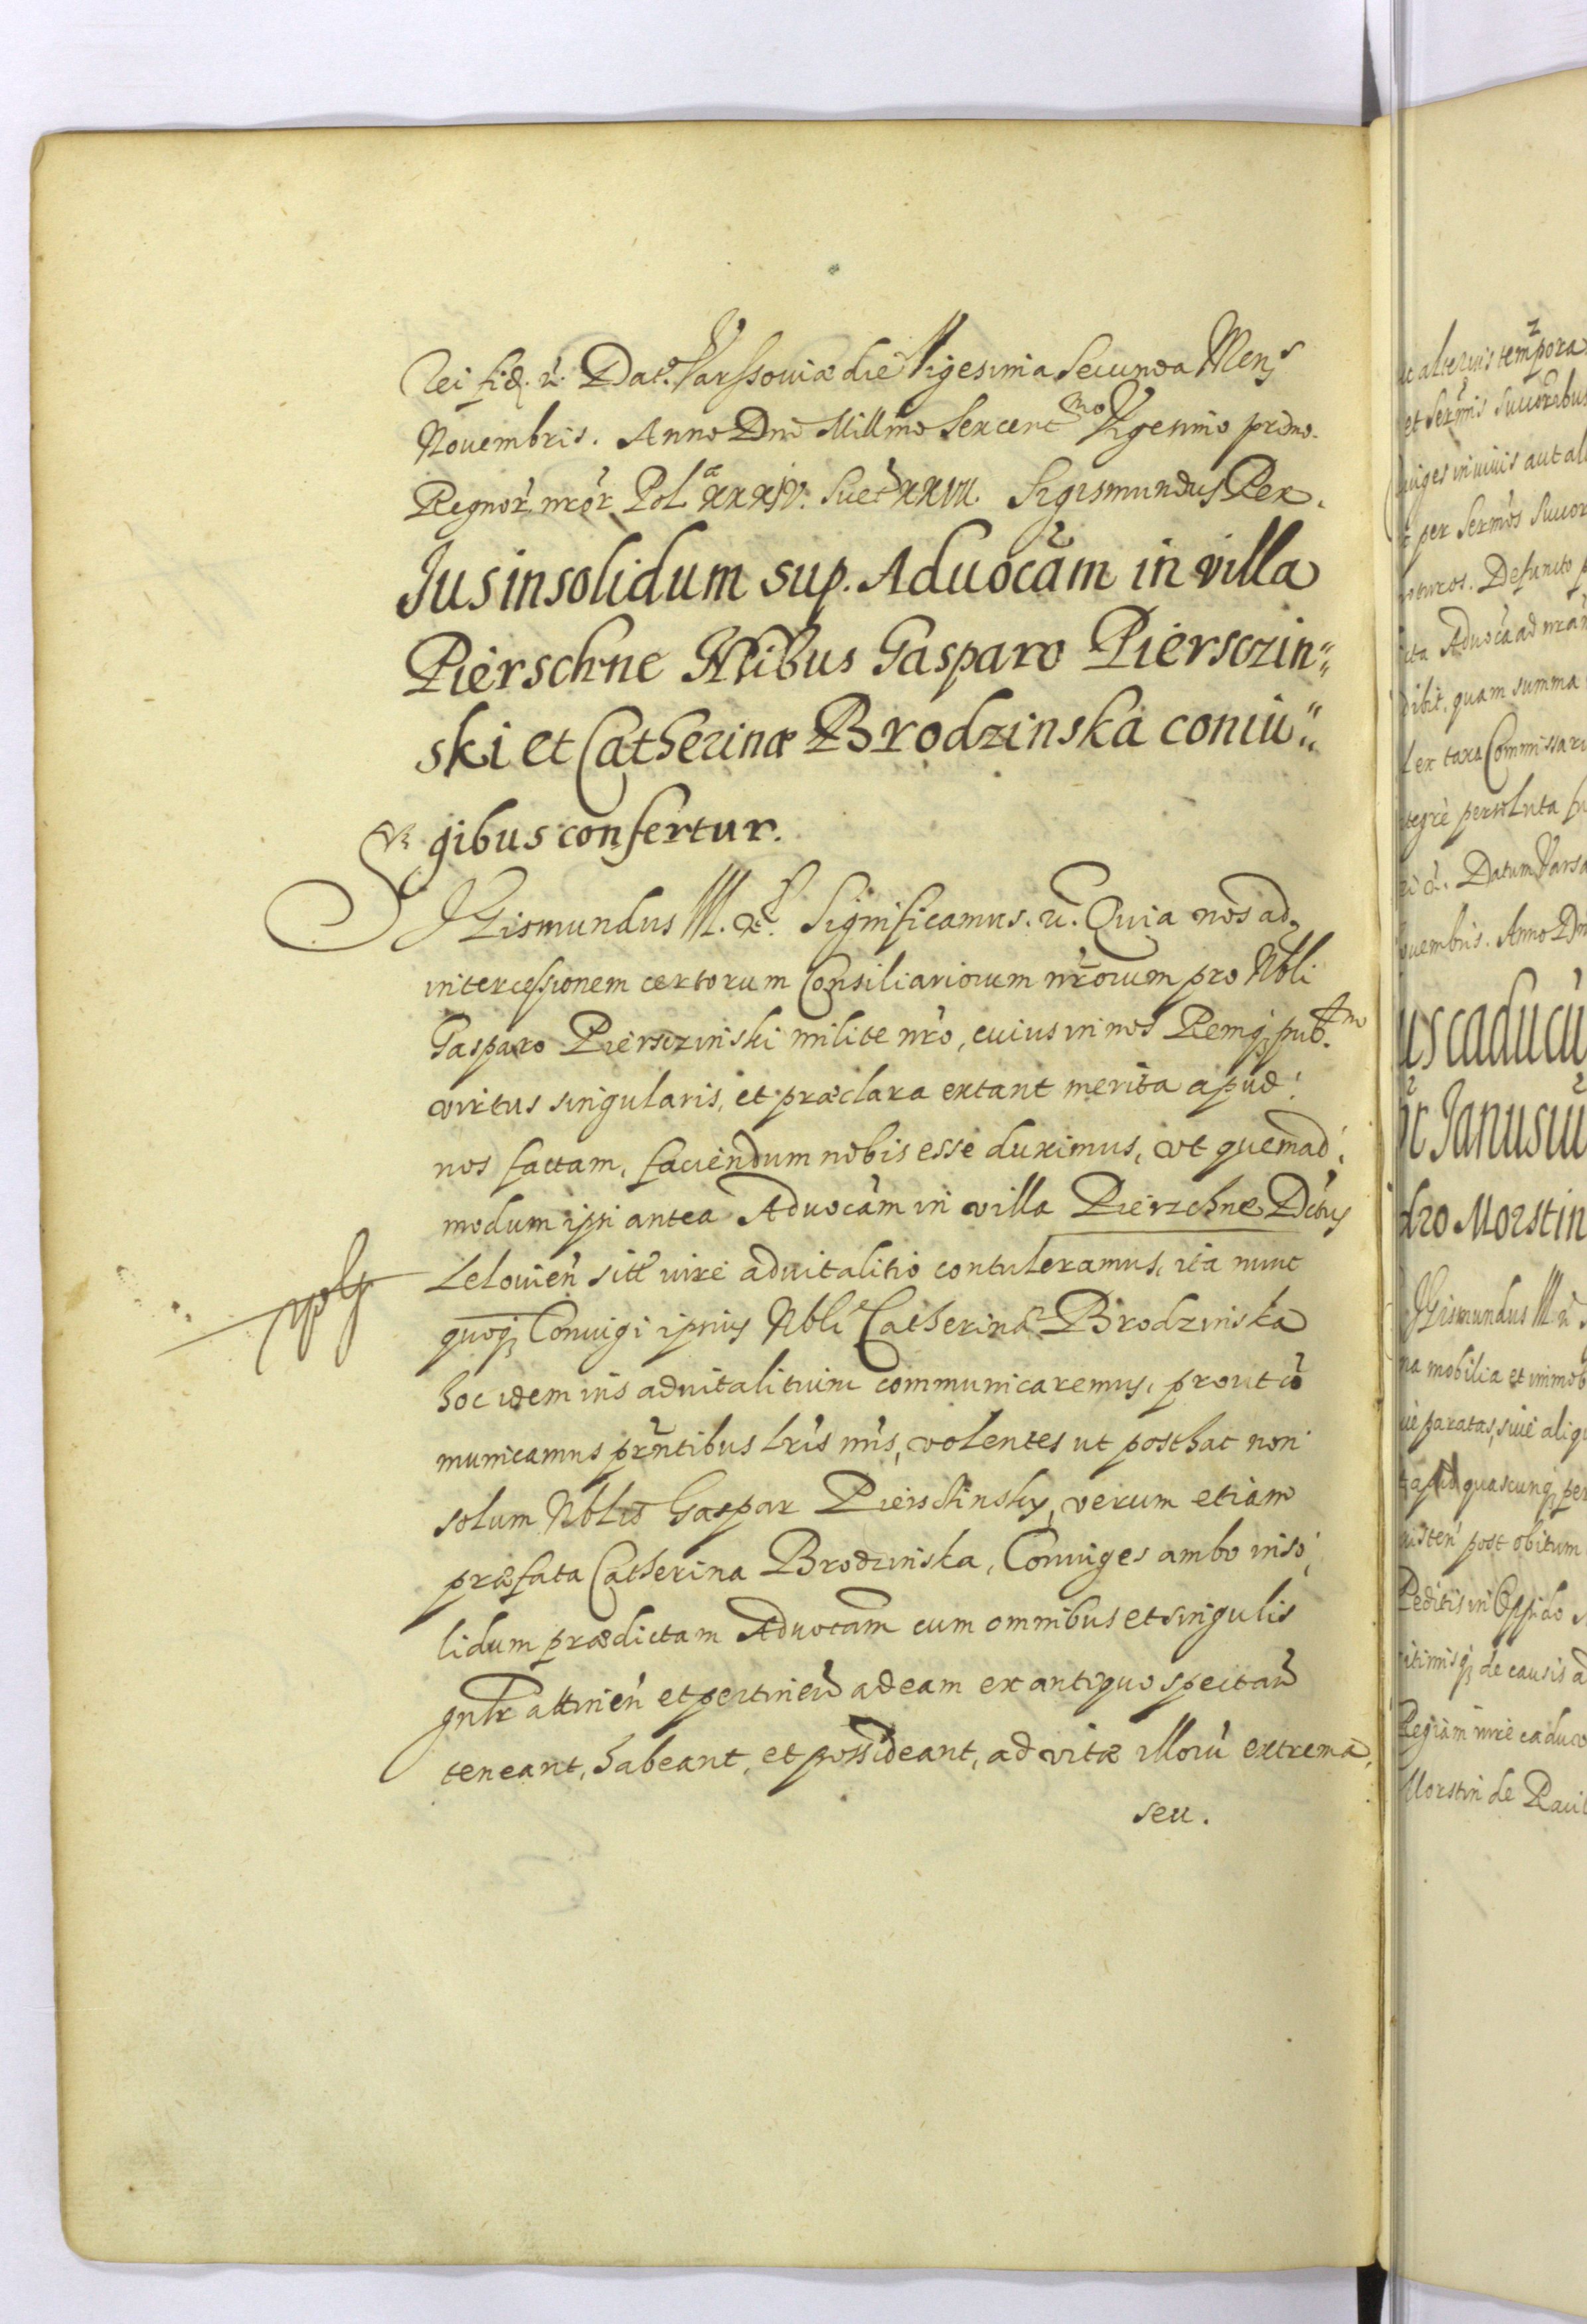 Rei fid. &. Dat. Varssoviæ die Vigesima Secunda Mens
Novembris. Anno Dni Millmo Sexcentmo Vigesimo primo.
Regnor. nror. Pol. XXXIV. Suet. XXVII. Sigismundus Rex.
Jus in solidum sup. Advocãm in villa
Pierschne Nlibus Gasparo Piersczin„
ski et Catherinæ Brodzinska coniu„
gibus confertur.
SIGismundus III. &. Significamus. &. Quia nos ad
intercessionem certorum Consiliariorum nrorum pro Nbli
Gasparo Piersczinski milite nro, cuius in nos Remq pub.
virtus singularis, et præclara extant merita apud
nos factam, faciendum nobis esse duximus, vt quemad
modum ipsi antea Advocãm in villa Pierzchne Dctus
Leloviẽn sitt iure advitalitio contuleramus, ita nunc
quoq Coniugi ipsius Nbli Catherinæ Brodzinska
hoc idem ius advitalitium communicaremus, prout cõ
municamus prñtibus lris nris, volentes ut posthac non
solum Nblis Gaspar Pierschinsky, verum etiam
præfata Catherina Brodzinska, Coniuges ambo inso
lidum prædictam Advocãm cum omnibus et singulis
gnlr attineñ et pertineñ ad eam ex antiquo spectañ
teneant, habeant, et possideant, ad vitæ illorũ extrema
seu.
ac alterius tempora
et Sermis Succoribus
iuges in vivis aut al
per Sermos Succor
oturos. Defuncto p
ita Advocã ad nrãm
dibit, quam summa
Lex taxa Commissari
tegrè persoluta fu
ei &. Datum Varsa
ovembris. Anno Dni
us caducũ
Janusiũ
dro Morstin
SIGismundus III &
na mobilia et immob
uè paratas, sive aliq
apud quascunq per
post obitum
Peditis in Oppido
itimisq de causis ad
Regiam iure caduco
Morstin de Raci